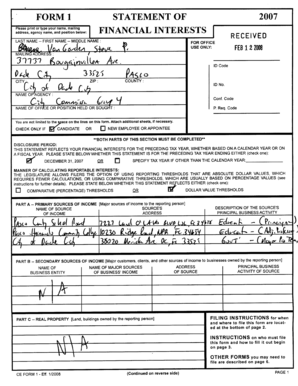 FORM 1
STATEMENT OF
2007
FINANCIAL INTERESTS
Please print or type your name, mailing address, agency name, and position below:
LAST NAME - FIRST NAME - MIDDLE NAME
FOR OFFICE USE ONLY:
RECEIVED
FEB 12 2008
Van Gorden, Steve P.
MAILING ADDRESS
37737 Bougainvillea Ave.
ID Code
Dade City 33525 Pasco
CITY ZIP COUNTY
ID No.
City of Dade City
NAME OF AGENCY
Conf. Code
City Commission Group 4
NAME OF OFFICE OR POSITION HELD OR SOUGHT
P. Req. Code
You are not limited to the space on the lines on this form. Attach additional sheets, if necessary.
CHECK ONLY IF CANDIDATE OR NEW EMPLOYEE OR APPOINTEE
**BOTH PARTS OF THIS SECTION MUST BE COMPLETED**
DISCLOSURE PERIOD:
THIS STATEMENT REFLECTS YOUR FINANCIAL INTERESTS FOR THE PRECEDING TAX YEAR, WHETHER BASED ON A CALENDAR YEAR OR ON A FISCAL YEAR. PLEASE STATE BELOW WHETHER THIS STATEMENT IS FOR THE PRECEDING TAX YEAR ENDING EITHER (check one):
DECEMBER 31, 2007 OR SPECIFY TAX YEAR IF OTHER THAN THE CALENDAR YEAR:
MANNER OF CALCULATING REPORTABLE INTERESTS:
THE LEGISLATURE ALLOWS FILERS THE OPTION OF USING REPORTING THRESHOLDS THAT ARE ABSOLUTE DOLLAR VALUES, WHICH REQUIRES FEWER CALCULATIONS, OR USING COMPARATIVE THRESHOLDS, WHICH ARE USUALLY BASED ON PERCENTAGE VALUES (see instructions for further details). PLEASE STATE BELOW WHETHER THIS STATEMENT REFLECTS EITHER (check one):
COMPARATIVE (PERCENTAGE) THRESHOLDS OR DOLLAR VALUE THRESHOLDS
PART A -- PRIMARY SOURCES OF INCOME [Major sources of income to the reporting person]
NAME OF SOURCE OF INCOME
SOURCE'S ADDRESS
DESCRIPTION OF THE SOURCE'S PRINCIPAL BUSINESS ACTIVITY
Pasco County School Board
Pasco Hernando Comm. College 10230 Ridge Road, NPR, FL 34654
City of Dade City 38020 Meridian Ave DC, FL 33525
PART B -- SECONDARY SOURCES OF INCOME [Major customers, clients, and other sources of income to businesses owned by the reporting person]
NAME OF BUSINESS ENTITY
NAME OF MAJOR SOURCES OF BUSINESS' INCOME
ADDRESS OF SOURCE
PRINCIPAL BUSINESS ACTIVITY OF SOURCE
N/A
PART C -- REAL PROPERTY [Land, buildings owned by the reporting person]
N/A
FILING INSTRUCTIONS for when and where to file this form are located at the bottom of page 2.
INSTRUCTIONS on who must file this form and how to fill it out begin on page 3.
OTHER FORMS you may need to file are described on page 6.
CE FORM 1 - Eff. 1/2008
(Continued on reverse side)
PAGE 1